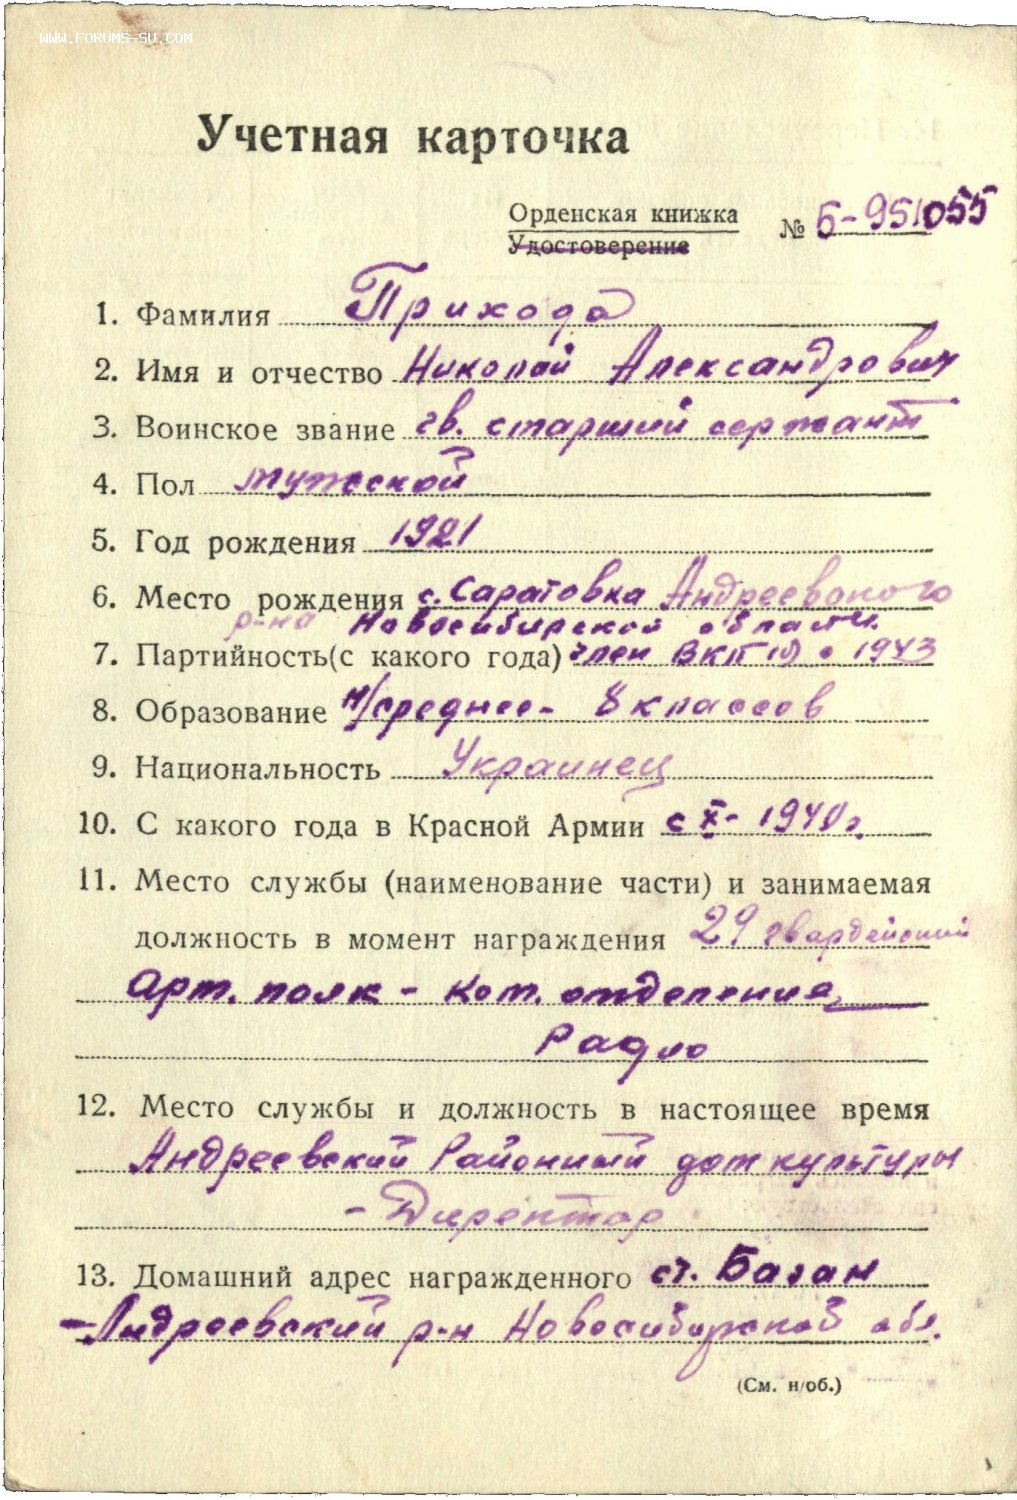 WWW.FORUMS-SU.COM
Учетная карточка
Орденская книжка № Б-951055
Удостоверение
1. Фамилия Приходо
2. Имя и отчество Николай Александрович
3. Воинское звание гв. старший сержант
4. Пол мужской
5. Год рождения 1921
6. Место рождения с. Саратовка Андреевского
р-на Новосибирской области.
7. Партийность (с какого года) член ВКП(б) с 1943
8. Образование н/среднее - 8 классов
9. Национальность Украинец
10. С какого года в Красной Армии с X- 1940г.
11. Место службы (наименование части) и занимаемая
должность в момент награждения 29 гвардейский
Арт. полк - Ком. отделения
Радио
12. Место службы и должность в настоящее время
Андреевский Районный дом культуры
- Директор
13. Домашний адрес награжденного ст. Баган
- Андреевский р-н Новосибирской обл.
(См. н/об.)